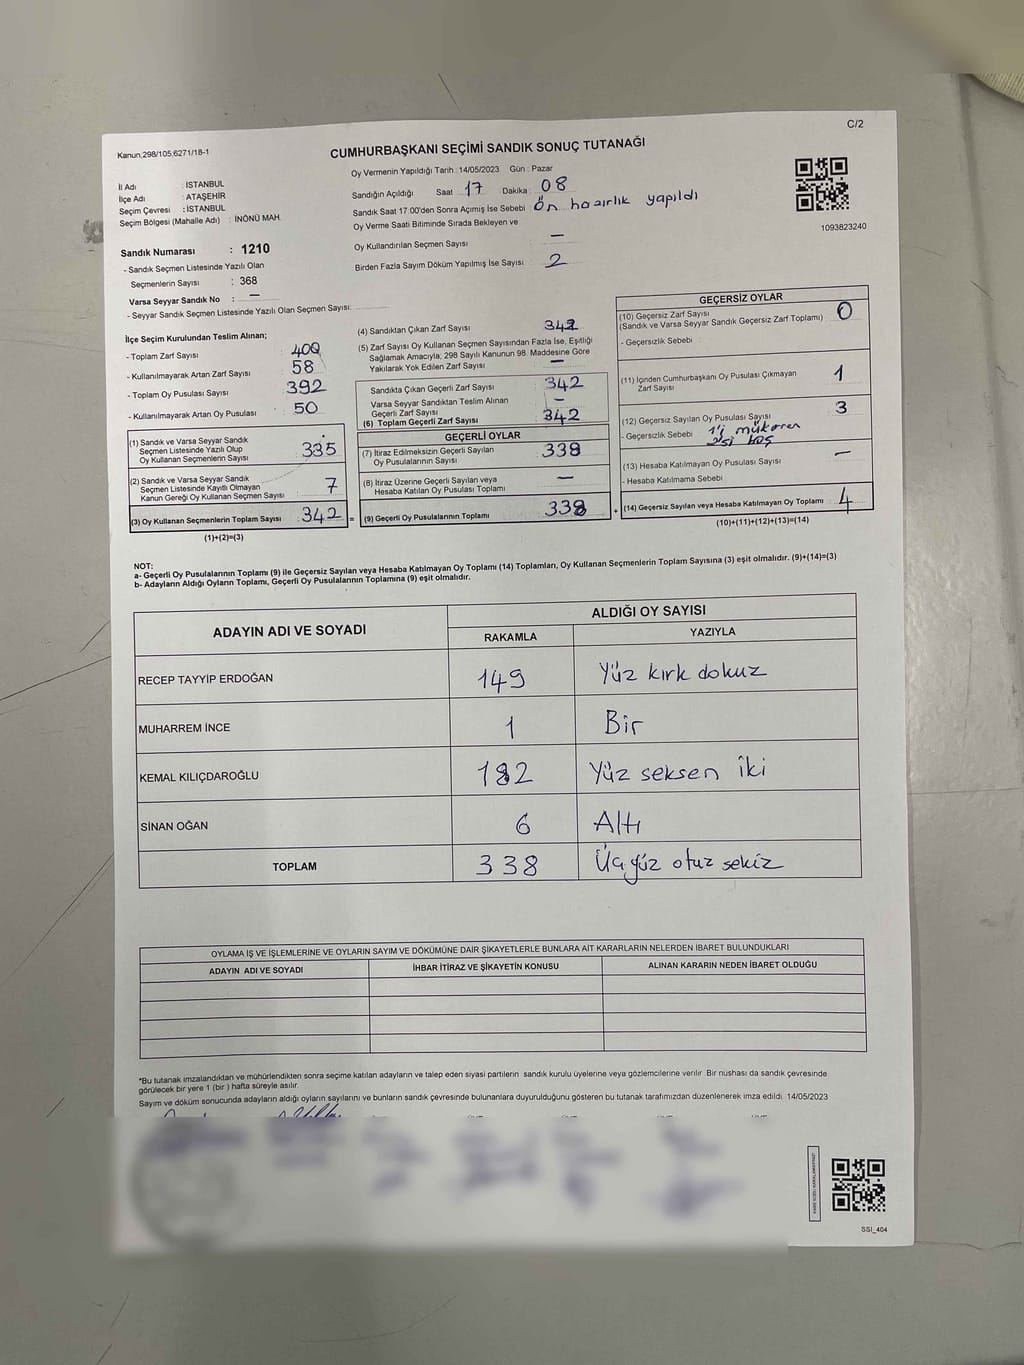 C/2
Kanun,298/105,6271/18-1
CUMHURBAŞKANI SEÇİMİ SANDIK SONUÇ TUTANAĞI
Oy Vermenin Yapıldığı Tarih :14/05/2023 Gün : Pazar
İl Adı : İSTANBUL
İlçe Adı : ATAŞEHİR
Seçim Çevresi : İSTANBUL
Seçim Bölgesi (Mahalle Adı) : İNÖNÜ MAH.
Sandığın Açıldığı Saat 17 Dakika : 08
Sandık Saat 17:00'den Sonra Açımış İse Sebebi : Ön hazırlık yapıldı
Oy Verme Saati Bitiminde Sırada Bekleyen ve
Oy Kullandırılan Seçmen Sayısı —
Birden Fazla Sayım Döküm Yapılmış İse Sayısı 2
1093823240
Sandık Numarası : 1210
- Sandık Seçmen Listesinde Yazılı Olan
Seçmenlerin Sayısı : 368
Varsa Seyyar Sandık No : —
- Seyyar Sandık Seçmen Listesinde Yazılı Olan Seçmen Sayısı:
İlçe Seçim Kurulundan Teslim Alınan;
- Toplam Zarf Sayısı 400
- Kullanılmayarak Artan Zarf Sayısı : 58
- Toplam Oy Pusulası Sayısı 392
- Kullanılmayarak Artan Oy Pusulası : 50
(1) Sandık ve Varsa Seyyar Sandık
Seçmen Listesinde Yazılı Olup
Oy Kullanan Seçmenlerin Sayısı : 335
(2) Sandık ve Varsa Seyyar Sandık
Seçmen Listesinde Kayıtlı Olmayan
Kanun Gereği Oy Kullanan Seçmen Sayısı : 7
(3) Oy Kullanan Seçmenlerin Toplam Sayısı : 342 =
(1)+(2)=(3)
(4) Sandıktan Çıkan Zarf Sayısı : 342
(5) Zarf Sayısı Oy Kullanan Seçmen Sayısından Fazla İse, Eşitliği
Sağlamak Amacıyla; 298 Sayılı Kanunun 98. Maddesine Göre
Yakılarak Yok Edilen Zarf Sayısı : —
Sandıkta Çıkan Geçerli Zarf Sayısı : 342
Varsa Seyyar Sandıktan Teslim Alınan
Geçerli Zarf Sayısı : —
(6) Toplam Geçerli Zarf Sayısı : 342
GEÇERLİ OYLAR
(7) İtiraz Edilmeksizin Geçerli Sayılan
Oy Pusulalarının Sayısı : 338
(8) İtiraz Üzerine Geçerli Sayılan veya
Hesaba Katılan Oy Pusulası Toplamı : —
(9) Geçerli Oy Pusulalarının Toplamı : 338 +
GEÇERSİZ OYLAR
(10) Geçersiz Zarf Sayısı
(Sandık ve Varsa Seyyar Sandık Geçersiz Zarf Toplamı) : 0
- Geçersizlik Sebebi :
(11) İçinden Cumhurbaşkanı Oy Pusulası Çıkmayan
Zarf Sayısı : 1
(12) Geçersiz Sayılan Oy Pusulası Sayısı : 3
- Geçersizlik Sebebi : 1'i mükerrer
2'si boş
(13) Hesaba Katılmayan Oy Pusulası Sayısı : —
- Hesaba Katılmama Sebebi :
(14) Geçersiz Sayılan veya Hesaba Katılmayan Oy Toplamı : 4
(10)+(11)+(12)+(13)=(14)
NOT:
a- Geçerli Oy Pusulalarının Toplamı (9) ile Geçersiz Sayılan veya Hesaba Katılmayan Oy Toplamı (14) Toplamları, Oy Kullanan Seçmenlerin Toplam Sayısına (3) eşit olmalıdır. (9)+(14)=(3)
b- Adayların Aldığı Oyların Toplamı, Geçerli Oy Pusulalarının Toplamına (9) eşit olmalıdır.
ADAYIN ADI VE SOYADI
ALDIĞI OY SAYISI
RAKAMLA YAZIYLA
RECEP TAYYİP ERDOĞAN 149 Yüz kırk dokuz
MUHARREM İNCE 1 Bir
KEMAL KILIÇDAROĞLU 182 Yüz seksen iki
SİNAN OĞAN 6 Altı
TOPLAM 338 Üçyüz otuz sekiz
OYLAMA İŞ VE İŞLEMLERİNE VE OYLARIN SAYIM VE DÖKÜMÜNE DAİR ŞİKAYETLERLE BUNLARA AİT KARARLARIN NELERDEN İBARET BULUNDUKLARI
ADAYIN ADI VE SOYADI İHBAR İTİRAZ VE ŞİKAYETİN KONUSU ALINAN KARARIN NEDEN İBARET OLDUĞU
*Bu tutanak imzalandıktan ve mühürlendikten sonra seçime katılan adayların ve talep eden siyasi partilerin sandık kurulu üyelerine veya gözlemcilerine verilir. Bir nüshası da sandık çevresinde
görülecek bir yere 1 (bir ) hafta süreyle asılır.
Sayım ve döküm sonucunda adayların aldığı oyların sayılarını ve bunların sandık çevresinde bulunanlara duyurulduğunu gösteren bu tutanak tarafımızdan düzenlenerek imza edildi. 14/05/2023
SSI_404